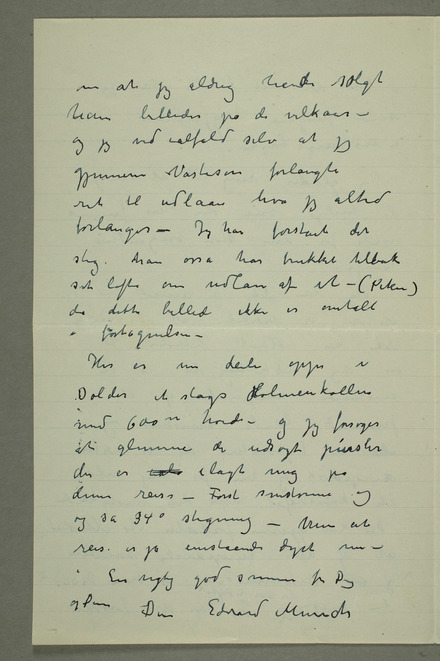 om at jeg aldrig havde solgt
ham billeder på de vilkaar –
og jeg ved ialfald selv at jeg
gjennem forlangte
ret til udlaan hva jeg altid
forlanger – Jeg har forstaaet det
slig. han ossa har trukket tilbake
sit løfte om udlån af et – (Piken)
da dette billed ikke er omtalt
i fortegnelsen –
Her er nu deilig oppe i
Dolder et slags Holmenkollen
med 600 m høide – og jeg forsøger
at glemme de udsøgte pinsler
der er ilagt mig på
denne reise – Først og
og så 34° stegning – Men at
reise er jo
En rigtig god sommer for Dig
og Din
Din Edvard Munch